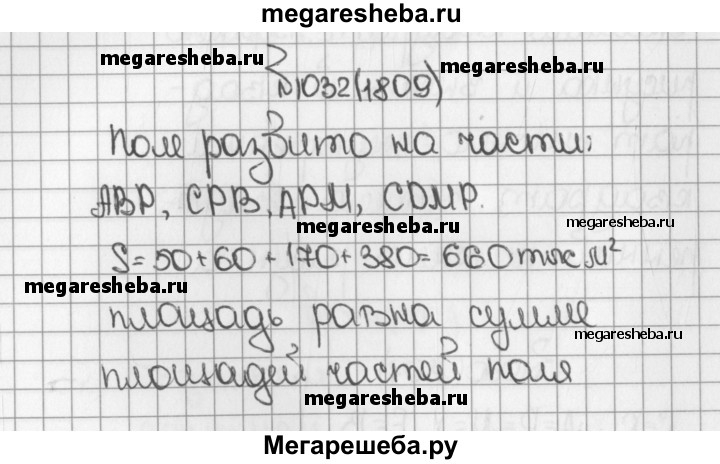 megaresheba.ru
megaresheba.ru megaresheba.ru
№1032(1809)
Поле разбито на части:
АВР, СРВ, АРМ, СDМР.
megaresheba.ru megaresheba.ru
S=50+60+170+380=660 тыс м²
megaresheba.ru
площадь равна сумме
megaresheba.ru
площадей частей поля
megaresheba.ru
Мегарешеба.ру